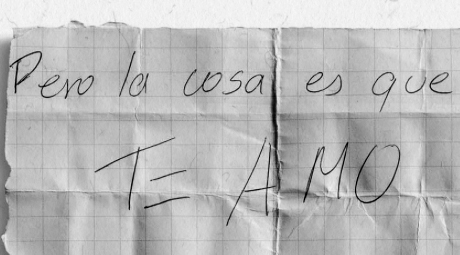 Pero la cosa es que
TE AMO